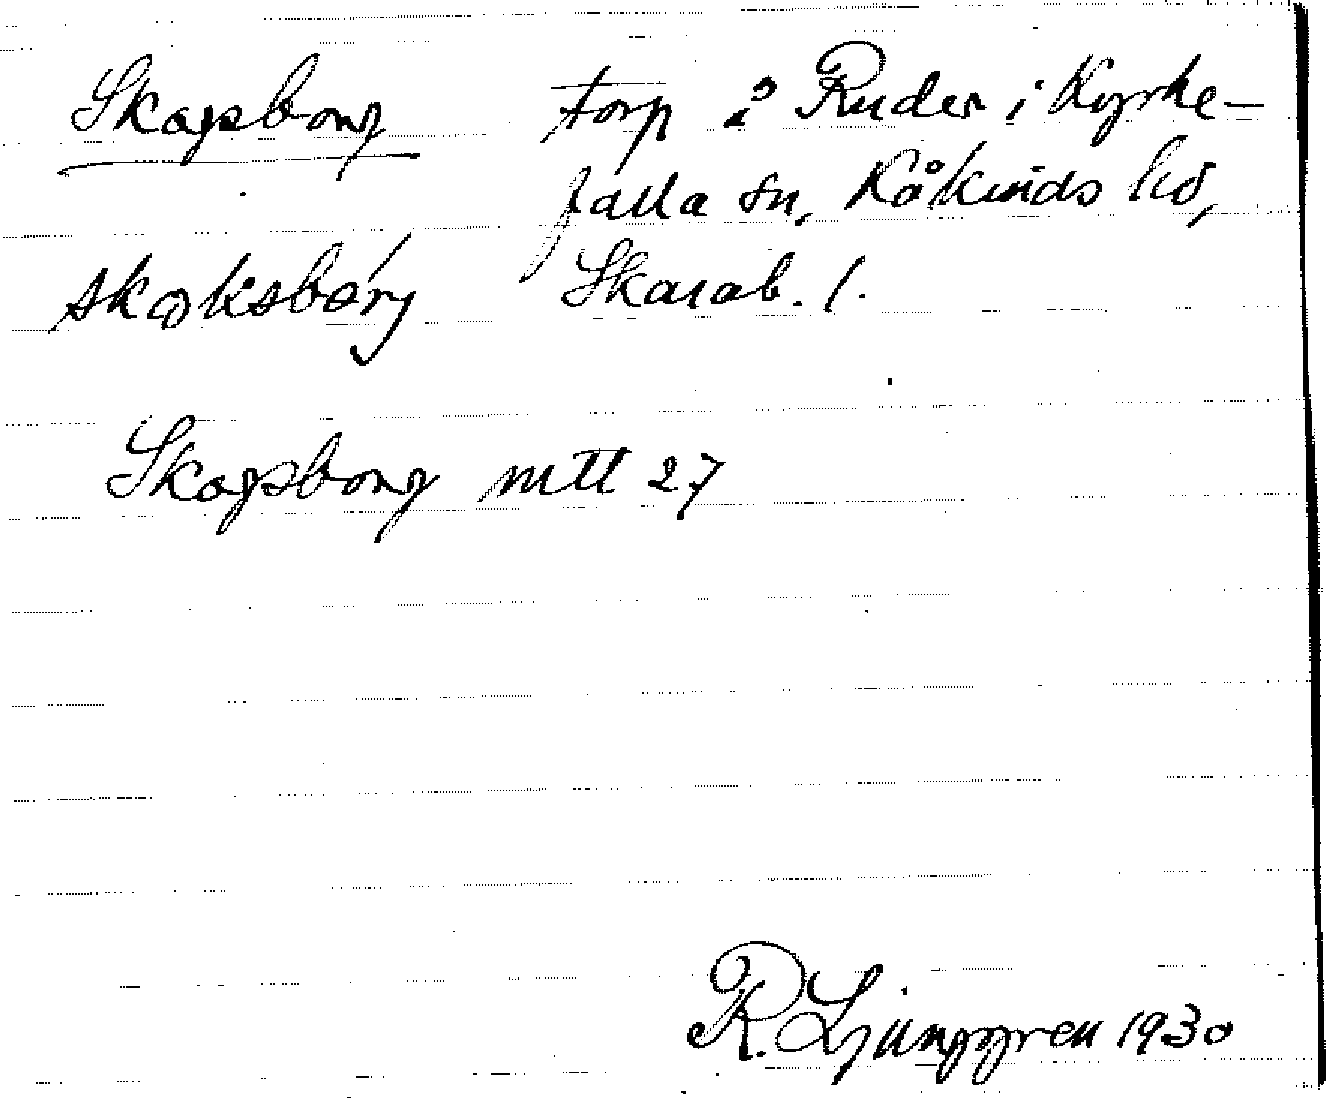 Skogsborg torp å Ruder i Kyrke-
falla sn, Kåkinds hd,
skoksbórj Skarab. l.
Skogsborg mtl 27
R. Ljunggren 1930